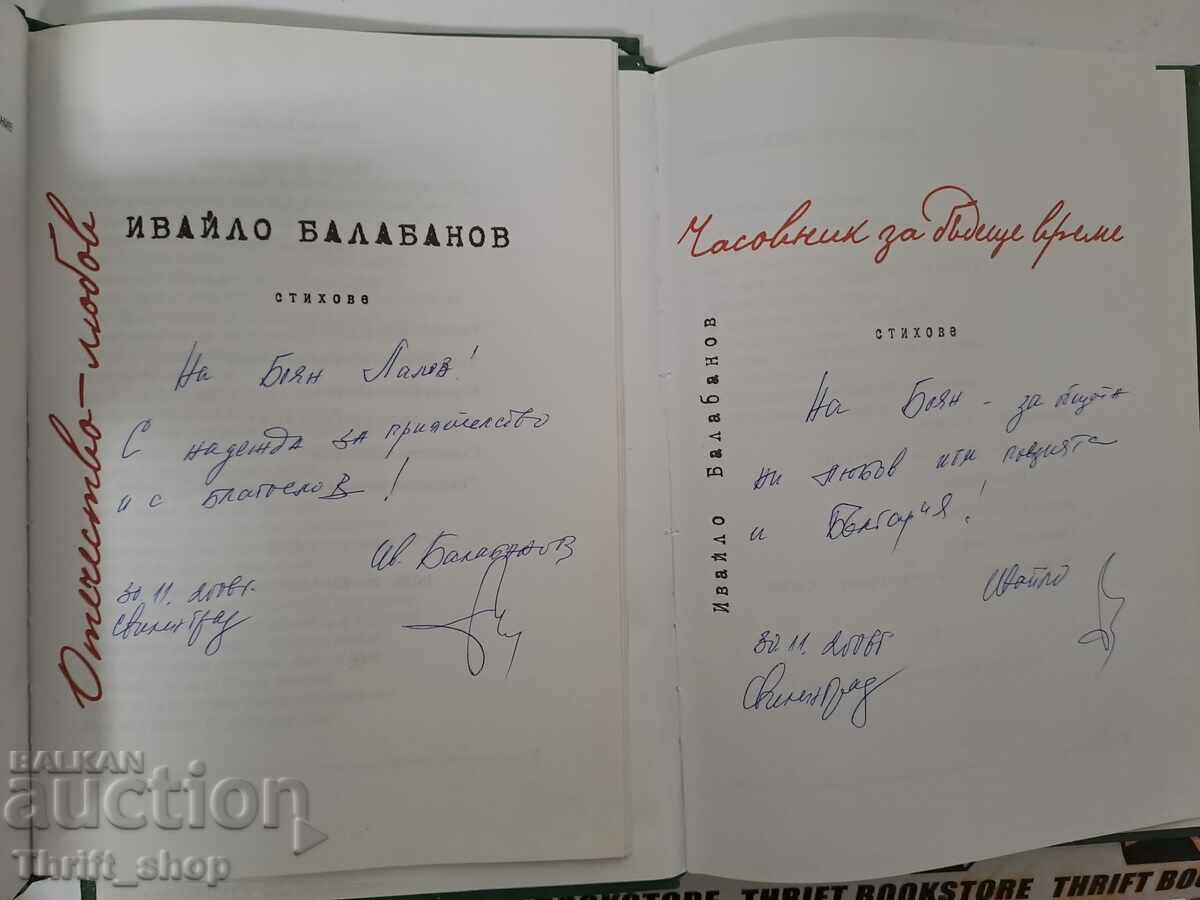 ние
Отечество–любов
ИВАЙЛО БАЛАБАНОВ
стихове
На Боян Лалев!
С надежда за приятелство
и с благослов!
Ив. Балабанов
30.11.2006г.
Свиленград
Часовник за бъдеще време
Ивайло Балабанов
стихове
На Боян – за общата
ни любов към поезията
и България!
Ивайло
30.11.2006г
Свиленград
BALKAN
auction
Thrift_shop
BOOKSTORE THRIFT BOOKSTORE THRIFT BOO